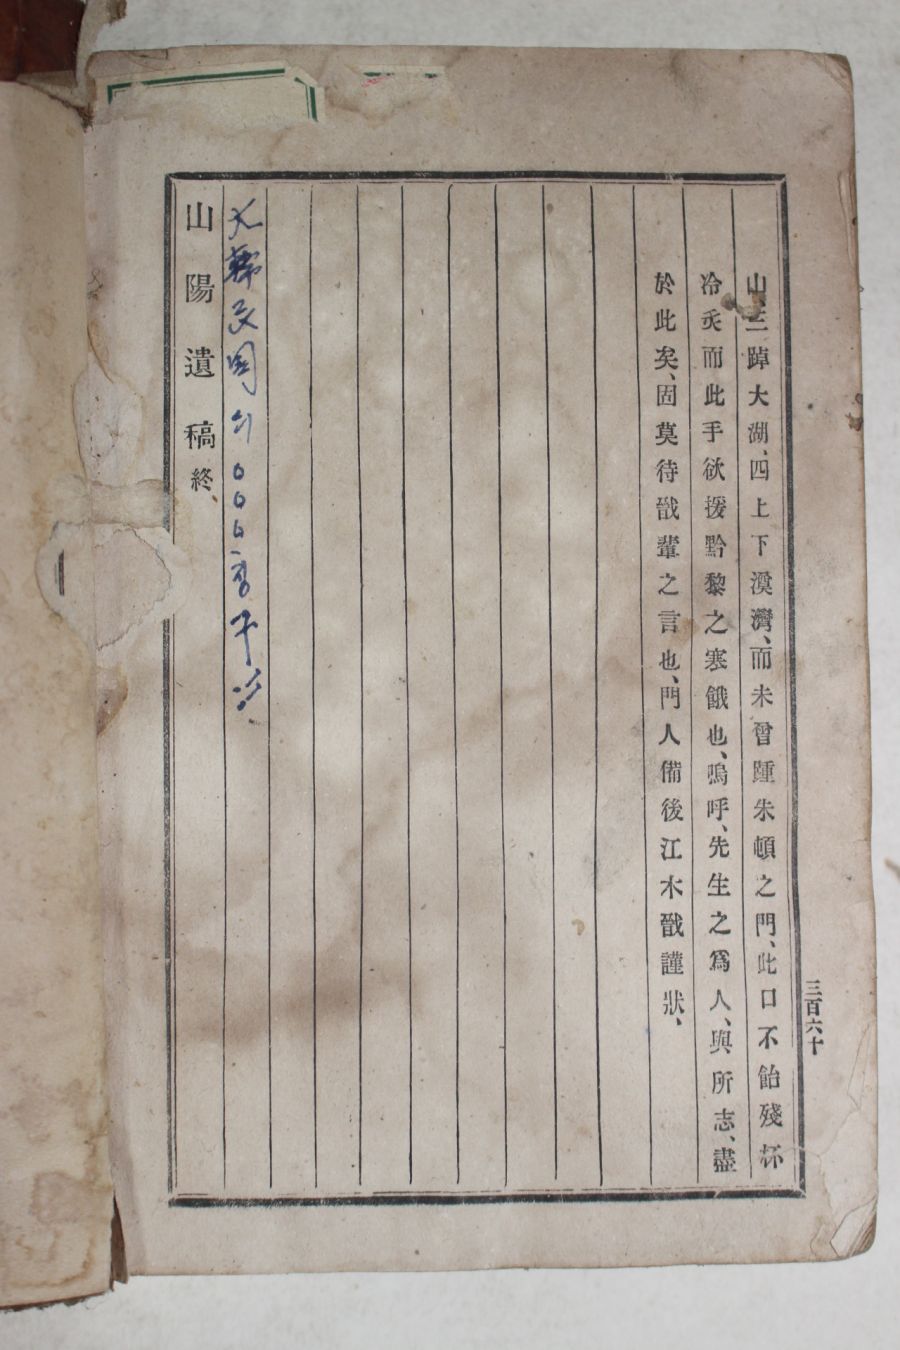 山、三踔大湖、四上下澳灣、而未曾踵朱頓之門、此口不飴殘杯
冷炙而此手欲援黔黎之寒餓也、嗚呼、先生之爲人、與所志、盡
於此矣、固莫待戩輩之言也、門人備後江木戩謹狀、
大韓民国의
山陽遺稿終
三百六十